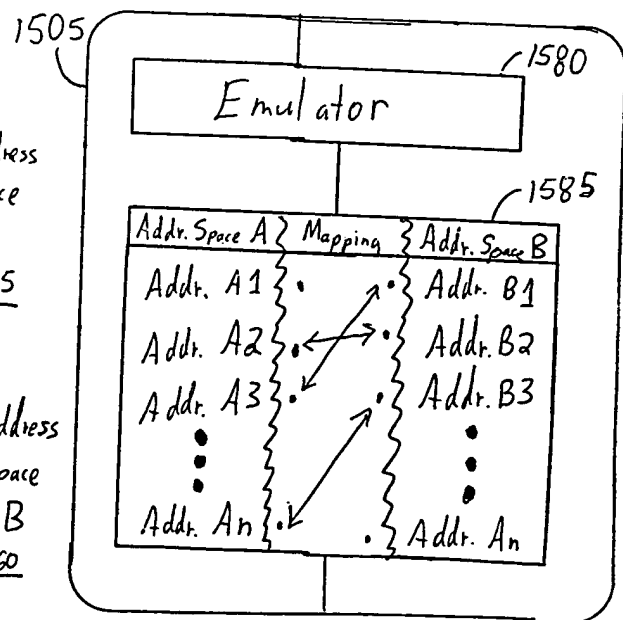 1505
1580
Emulator
1585
Addr. Space A Mapping Addr. Space B
Addr. A1 Addr. B1
Addr. A2 Addr. B2
Addr. A3 Addr. B3
Addr. An Addr. An
B